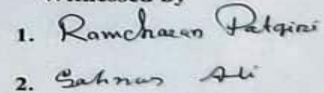 1. Ramcharan Patgiri
2. Sahnas Ali